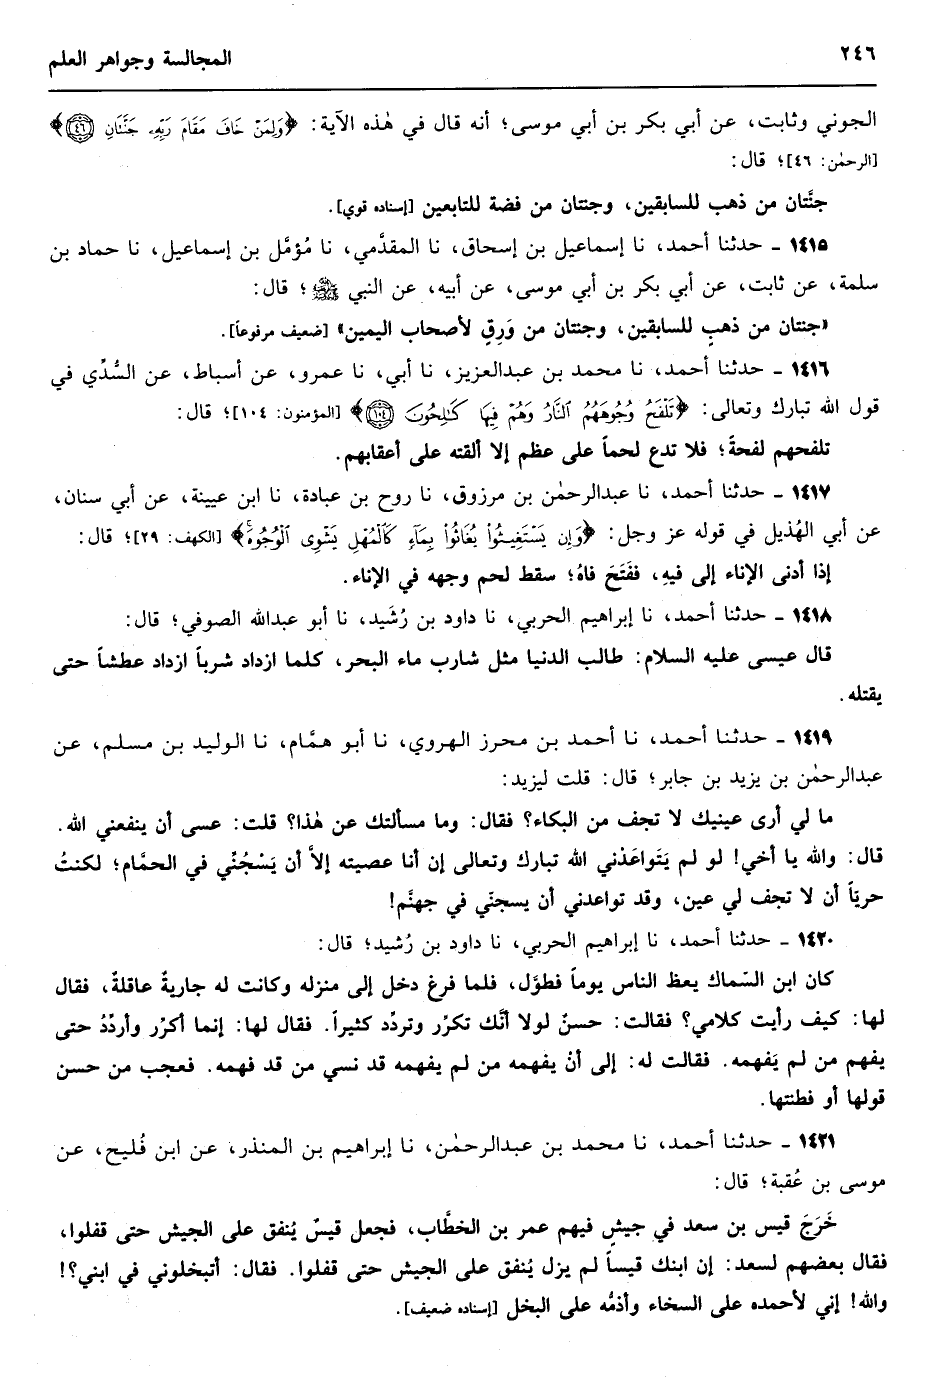 ٢٤٦
المجالسة وجواهر العلم
الجوني وثابت، عن أبي بكر بن أبي موسى؛ أنه قال في هٰذه الآية: ﴿وَلِمَنْ خَافَ مَقَامَ رَبِّهِۦ جَنَّتَانِ ٤٦﴾
[الرحمٰن: ٤٦]؛ قال:
جنَّتان من ذهب للسابقين، وجنتان من فضة للتابعين [إسناده قوي].
١٤١٥ ـ حدثنا أحمد، نا إسماعيل بن إسحاق، نا المقدَّمي، نا مُؤمَّل بن إسماعيل، نا حماد بن
سلمة، عن ثابت، عن أبي بكر بن أبي موسى، عن أبيه، عن النبي ﷺ؛ قال:
«جنتان من ذهبٍ للسابقين، وجنتان من وَرِقٍ لأصحاب اليمين» [ضعيف مرفوعاً].
١٤١٦ ـ حدثنا أحمد، نا محمد بن عبدالعزيز، نا أبي، نا عمرو، عن أسباط، عن السُّدِّي في
قول الله تبارك وتعالى: ﴿تَلْفَحُ وُجُوهَهُمُ ٱلنَّارُ وَهُمْ فِيهَا كَـٰلِحُونَ ١٠٤﴾ [المؤمنون: ١٠٤]؛ قال:
تلفحهم لفحةً؛ فلا تدع لحماً على عظم إلا ألقته على أعقابهم.
١٤١٧ ـ حدثنا أحمد، نا عبدالرحمٰن بن مرزوق، نا روح بن عبادة، نا ابن عيينة، عن أبي سنان،
عن أبي الهُذيل في قوله عز وجل: ﴿وَإِن يَسْتَغِيثُوا۟ يُغَاثُوا۟ بِمَآءٍ كَٱلْمُهْلِ يَشْوِى ٱلْوُجُوهَۚ﴾ [الكهف: ٢٩]؛ قال:
إذا أدنى الإناء إلى فيهِ، ففَتَحَ فاهُ؛ سقط لحم وجهه في الإناء.
١٤١٨ ـ حدثنا أحمد، نا إبراهيم الحربي، نا داود بن رُشَيد، نا أبو عبدالله الصوفي؛ قال:
قال عيسى عليه السلام: طالب الدنيا مثل شارب ماء البحر، كلما ازداد شرباً ازداد عطشاً حتى
يقتله.
١٤١٩ ـ حدثنا أحمد، نا أحمد بن محرز الهروي، نا أبو همَّام، نا الوليد بن مسلم، عن
عبدالرحمٰن بن يزيد بن جابر؛ قال: قلت ليزيد:
ما لي أرى عينيك لا تجف من البكاء؟ فقال: وما مسألتك عن هٰذا؟ قلت: عسى أن ينفعني الله.
قال: والله يا أخي! لو لم يَتَواعَدْني الله تبارك وتعالى إن أنا عصيته إلاَّ أن يَسْجُنّي في الحمَّام؛ لكنتُ
حريّاً أن لا تجف لي عين، وقد تواعدني أن يسجنّي في جهنَّم!
١٤٢٠ ـ حدثنا أحمد، نا إبراهيم الحربي، نا داود بن رُشيد؛ قال:
كان ابن السّماك يعظ الناس يوماً فطوَّل، فلما فرغ دخل إلى منزله وكانت له جاريةٌ عاقلةٌ، فقال
لها: كيف رأيت كلامي؟ فقالت: حسنٌ لولا أنَّك تكرّر وتردّد كثيراً. فقال لها: إنما أكرّر وأردّدُ حتى
يفهم من لم يَفهمه. فقالت له: إلى أنْ يفهمه من لم يفهمه قد نسي من قد فهمه. فعجب من حسن
قولها أو فطنتها.
١٤٢١ ـ حدثنا أحمد، نا محمد بن عبدالرحمٰن، نا إبراهيم بن المنذر، عن ابن فُليح، عن
موسى بن عُقبة؛ قال:
خَرَجَ قيس بن سعد في جيشٍ فيهم عمر بن الخطَّاب، فجعل قيسٌ يُنفق على الجيش حتى قفلوا،
فقال بعضهم لسعد: إن ابنك قيساً لم يزل يُنفق على الجيش حتى قفلوا. فقال: أتبخلوني في ابني؟!
والله! إني لأحمده على السخاء وأذمُّه على البخل [إسناده ضعيف].